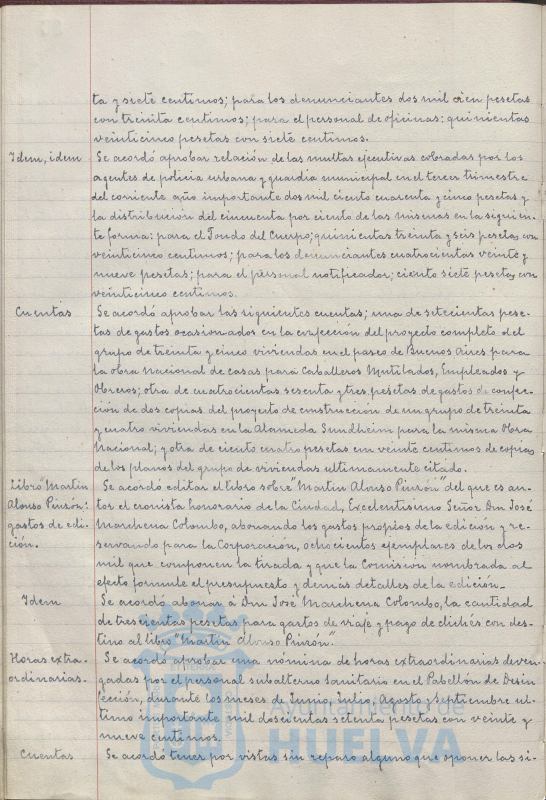 ta y siete centimos; para los denunciantes dos mil cien pesetas
con treinta centimos; para el personal de oficinas: quinientas
veinticinco pesetas con siete centimos.
Idem, idem Se acordó aprobar relación de las multas ejecutivas cobradas por los
agentes de policia urbana y guardia municipal en el tercer trimestre
del corriente año importante dos mil ciento cuarenta y cinco pesetas y
la distribución del cincuenta por ciento de las mismas en la siguien-
te forma: para el Fondo del Cuerpo; quinientas treinta y seis pesetas con
veinticinco centimos; para los denunciantes cuatrocientas veinte y
nueve pesetas; para el personal notificador; ciento siete pesetas con
veinticinco centimos.
Cuentas Se acordó aprobar las siguientes cuentas; una de setecientas pese-
tas de gastos ocasionados en la confección del proyecto completo del
grupo de treinta y cinco viviendas en el paseo de Buenos Aires para
la obra nacional de casas para Caballeros Mutilados, Empleados y
Obreros; otra de cuatrocientas sesenta y tres pesetas de gastos de confec-
ción de dos copias del proyecto de construcción de un grupo de treinta
y cuatro viviendas en la Alameda Sundheim para la misma Obra
Nacional; y otra de ciento cuatro pesetas con veinte centimos de copias
de los planos del grupo de viviendas ultimamente citado.
Libro "Martin Se acordó editar el libro sobre "Martin Alonso Pinzón" del que es au-
Alonso Pinzón: tor el cronista honorario de la Ciudad, Excelentisimo Señor Don José
gastos de edi- Marchena Colombo, abonando los gastos propios de la edición y re-
ción. servando para la Corporación, ochocientos ejemplares de los dos
mil que componen la tirada y que la Comision nombrada al
efecto formule el presupuesto y demás detalles de la edición.
Idem Se acordó abonar á Don José Marchena Colombo, la cantidad
de trescientas pesetas para gastos de viaje y pago de clichés con des-
tino al libro "Martin Alonso Pinzón".
Horas extra- Se acordó aprobar una nómina de horas extraordinarias deven-
ordinarias. gadas por el personal subalterno sanitario en el Pabellón de Desin
fección, durante los meses de Junio, Julio, Agosto y Septiembre ul-
timo importante mil doscientas setenta pesetas con veinte y
nueve centimos.
Cuentas Se acordó tener por vistas sin reparo alguno que oponer las si-
Ayuntamiento de
HUELVA